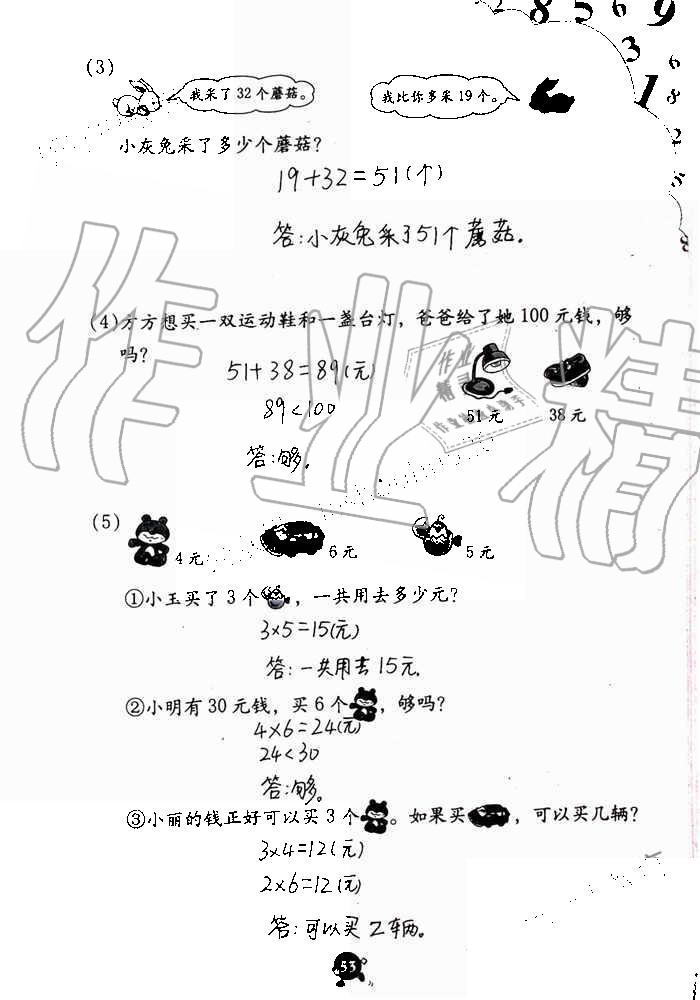 8 5 6 9
3
1
6
8
2
5
(3)
我采了 32 个蘑菇。
我比你多采 19 个。
小灰兔采了多少个蘑菇？
19+32=51(个)
答:小灰兔采了51个蘑菇。
(4) 方方想买一双运动鞋和一盏台灯，爸爸给了她 100 元钱，够
吗？
51+38=89(元)
89<100
51 元
38 元
答:够。
(5)
4 元
6 元
5 元
①小玉买了 3 个，一共用去多少元？
3×5=15(元)
答:一共用去15元.
②小明有 30 元钱，买 6 个，够吗？
4×6=24(元)
24<30
答:够。
③小丽的钱正好可以买 3 个。如果买，可以买几辆？
3×4=12(元)
2×6=12(元)
答:可以买2辆。
53
作业精